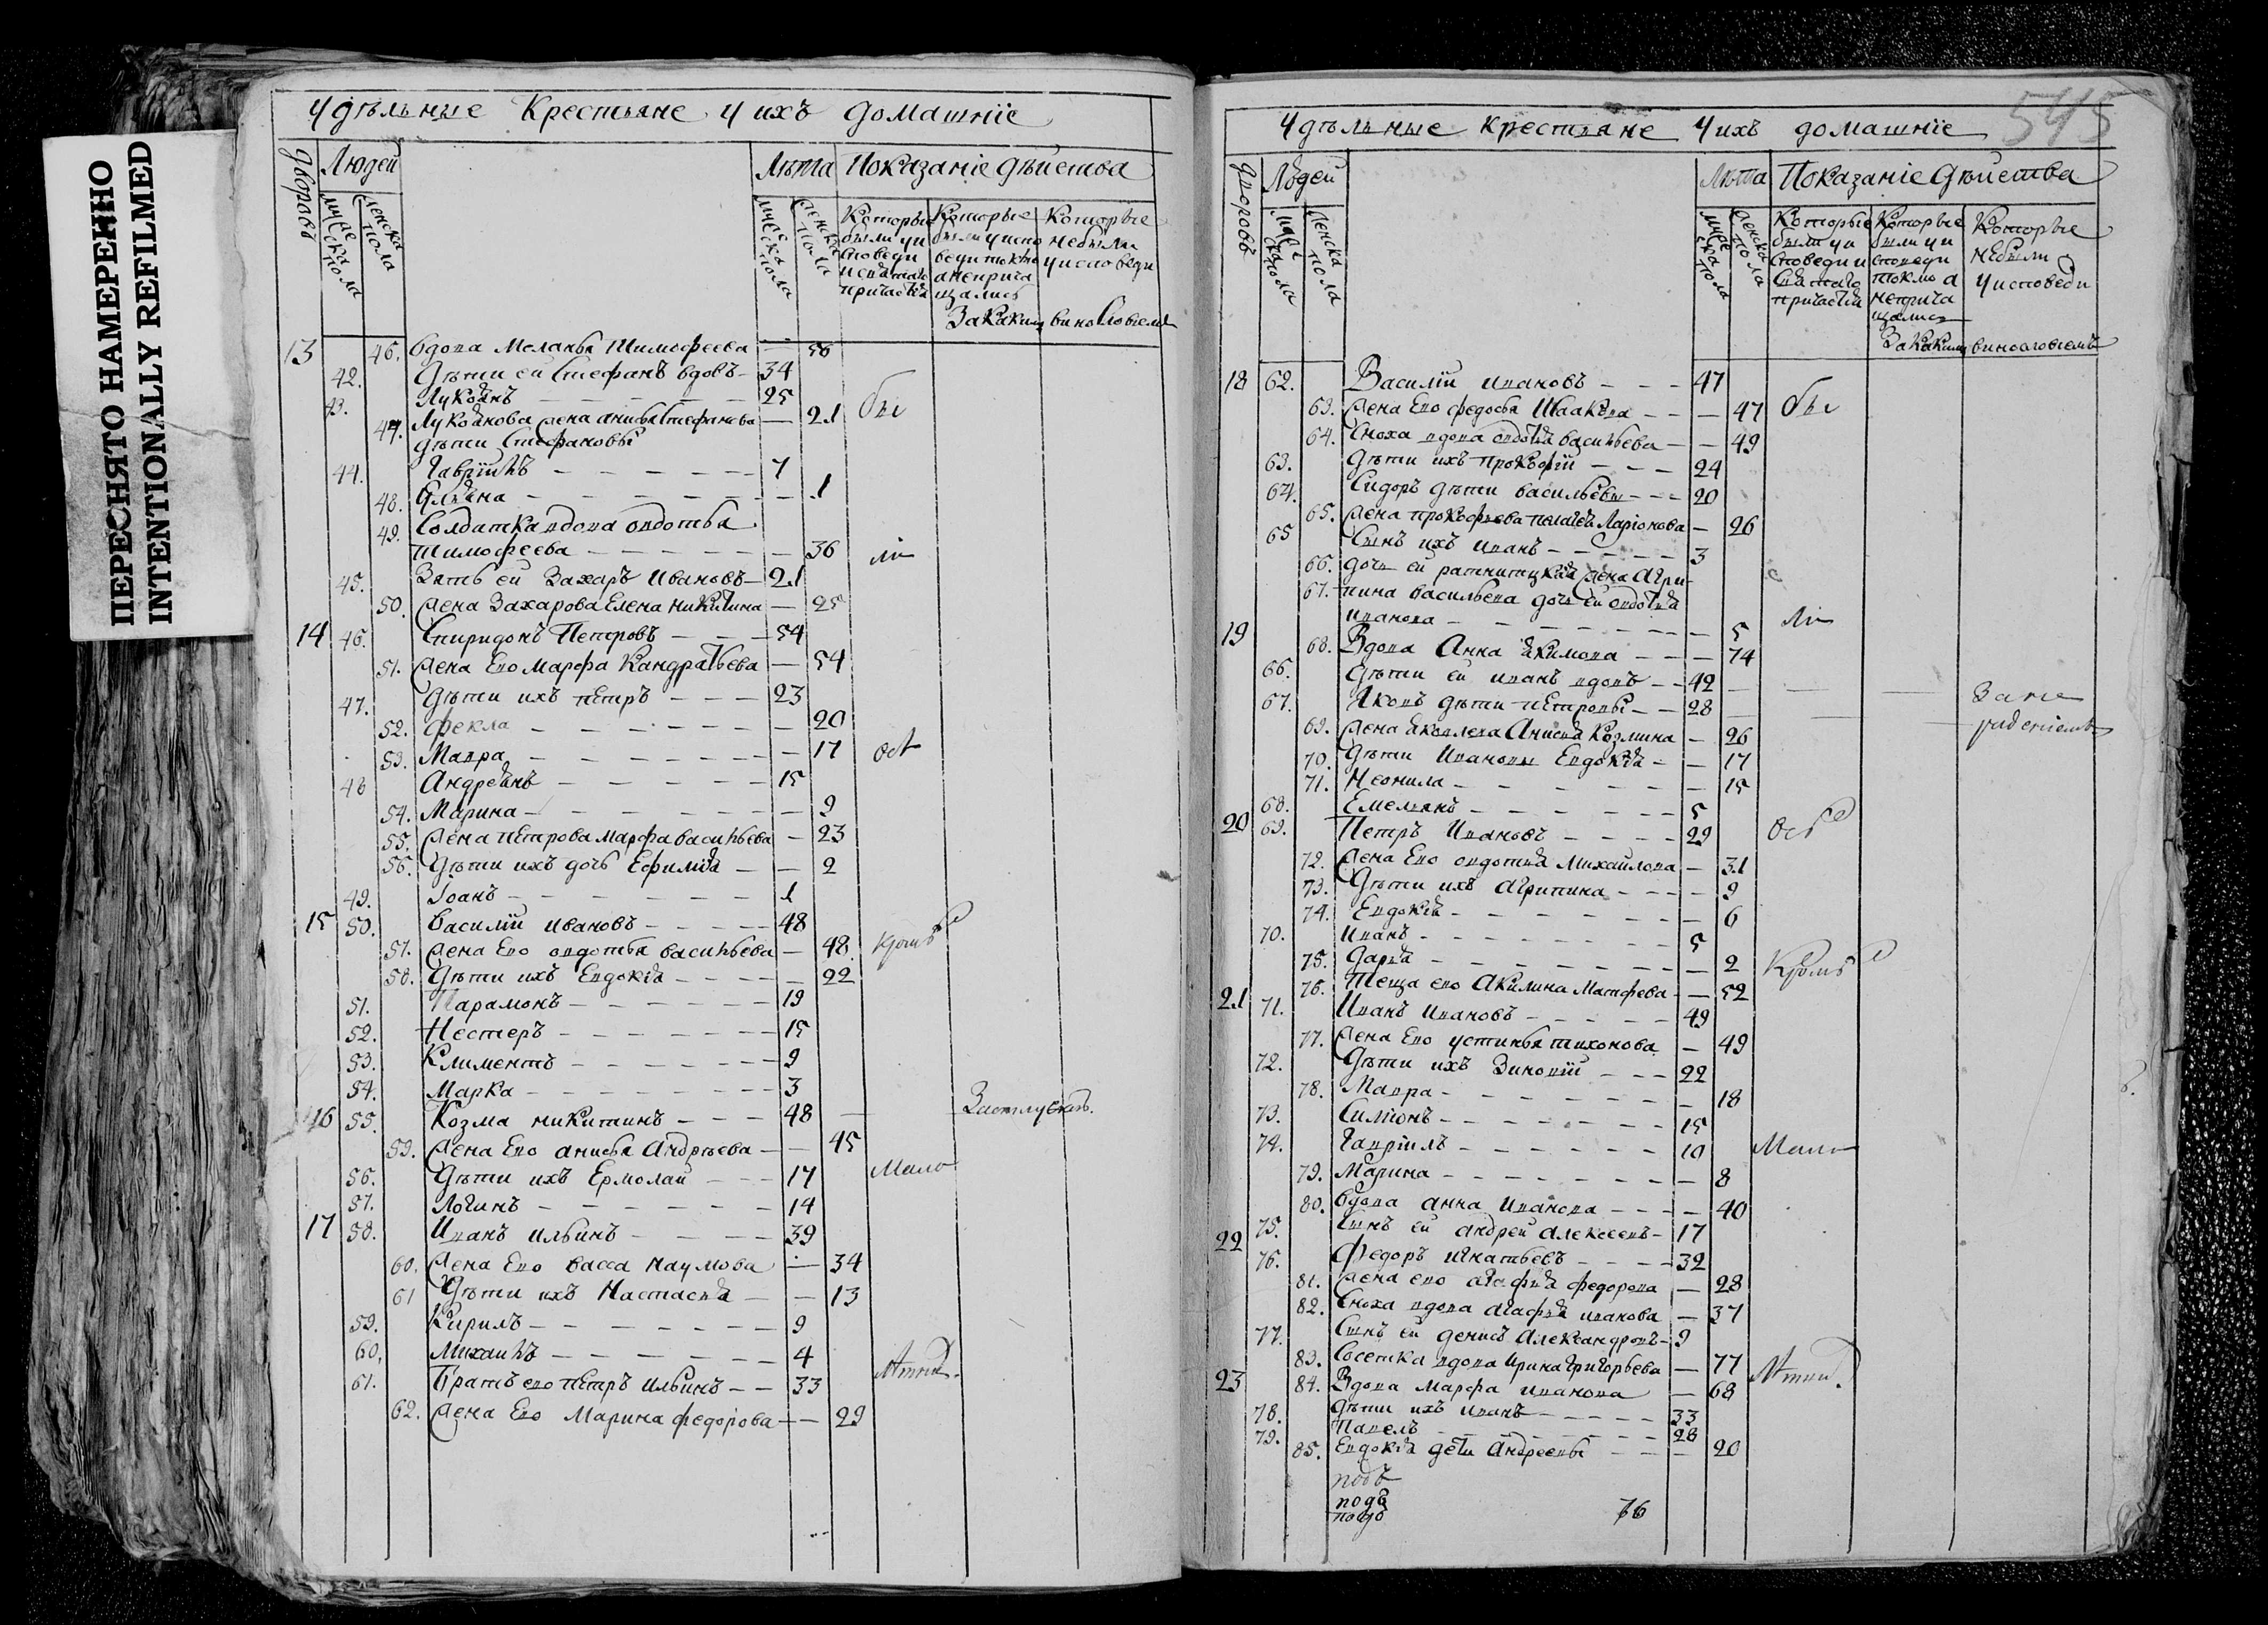 ПЕРЕСНЯТО НАМЕРЕННО
INTENTIONALLY REFILMED
Удѣльные Крестьяне Y ихъ домашнїе
дворовъ Людей Лѣта Показанїе дѣйства
мужеска пола женска пола мужеска пола женска пола
Которые были Yи споведи и святаго причастїя
Которые были Yиспо веди токмо а неприча щались
Которые небыли Yисповеди
За какимъ винословїемъ
13 46. вдова Меланья Тимофеева — 56
42. Дѣти ей Стефанъ вдовъ 34
43. Лукоянъ 25
47. Лукоянова жена анисья Стефанова — 21
дѣти Стефановы
44. Гаврїилъ 7
48. Ульяна — 1
49. Солдатка вдова овдотья
тимофеева — 36
45. Зять ей Захаръ Ивановъ 21
50. жена Захарова Елена никитина — 25
14 46. Спиридонъ Петровъ 54
51. жена Ево Марфа Кандратьева — 54
47. Дѣти ихъ пЕтръ 23
52. фекла — 20
53. Мавра — 17
48 Андреянъ 15
54. Марина — 9
55. жена пЕтрова марфа васильева — 23
56. Дѣти ихъ дочь Ефимїя — 2
49. Іоанъ 1
15 50. Василїй ивановъ 48
57. жена Ево овдотья васильева — 48
58. Дѣти ихъ Евдокїя — 22
51. Парамонъ 19
52. Нестеръ 15
53. Климентъ 9
54. Марка 3
16 55. Козма никитинъ 48
59. жена Ево анисья Андрѣева — 45
56. Дѣти ихъ Ермолай 17
57. Логинъ 14
17 58. Иванъ ильинъ 39
60. жена Ево васса наумова — 34
61 Дѣти ихъ Настасья — 13
59. Кирилъ 9
60. Михаилъ 4
61. Братъ ево пЕтръ ильинъ 33
62. жена Ево Марина федорова — 29
545
Удѣльные крестьяне Yихъ домашнїе
дворовъ Людей Лѣта Показанїе дѣйства
мужеска пола женска пола мужеска пола женска пола
Которые были Yи споведи и святаго причастїя
Которые были Yи споведи токмо а неприча щались
Которые небыли Yисповеди
За какимъ винословїемъ
18 62. Василїй ивановъ 47
63. жена Ево федосья Исаакова — 47
64. Сноха вдова овдотья васильева — 49
63. дѣти ихъ прокофїй 24
64. Сидоръ дѣти васильевы 20
65. жена прокофьева пелагея Ларїонова — 26
65 Сынъ ихъ иванъ 3
66. дочь ей ратницкая жена агри-
67. пина васильева дочь ей овдотья
иванова — 5
19 68. Вдова Анна якимова — 74
66. Дѣти ей иванъ вдовъ 42
67. Яковъ дѣти пЕтровы 28
За не
радениемъ
69. жена яковлева Анисья Козмина — 26
70. Дѣти Ивановы Евдокїя — 17
71. Неонила — 15
68. Емельянъ 5
20 69. Петръ Ивановъ 29
72. жена Ево овдотья Михайлова — 31
73. Дѣти ихъ агрипина — 9
74. Евдокїя — 6
70. иванъ 5
75. Дарья — 2
76. Теща ево Акилина Матфева — 52
21 71. Иванъ ивановъ 49
77. жена Ево устинья тихонова — 49
72. Дѣти ихъ Зиновїй 22
78. Мавра — 18
73. Симїонъ 15
74. Гаврїилъ 10
79. Марина — 8
80. вдова анна иванова — 40
75. Сынъ ей андрей алексеевъ 17
22 76. федоръ игнатьевъ 32
81. жена ево агафья федорова — 28
82. Сноха вдова агафья иванова — 37
77. Сынъ ей денисъ Александровъ 9
83. Соседка вдова Ирина григорьева — 77
23 84. Вдова марфа иванова — 68
78. дѣти ихъ иванъ 33
79. Павелъ 28
85. Евдокїя дети Андреевы — 20
подъ
подъ
76